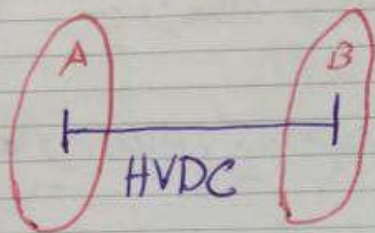 A B
HVDC